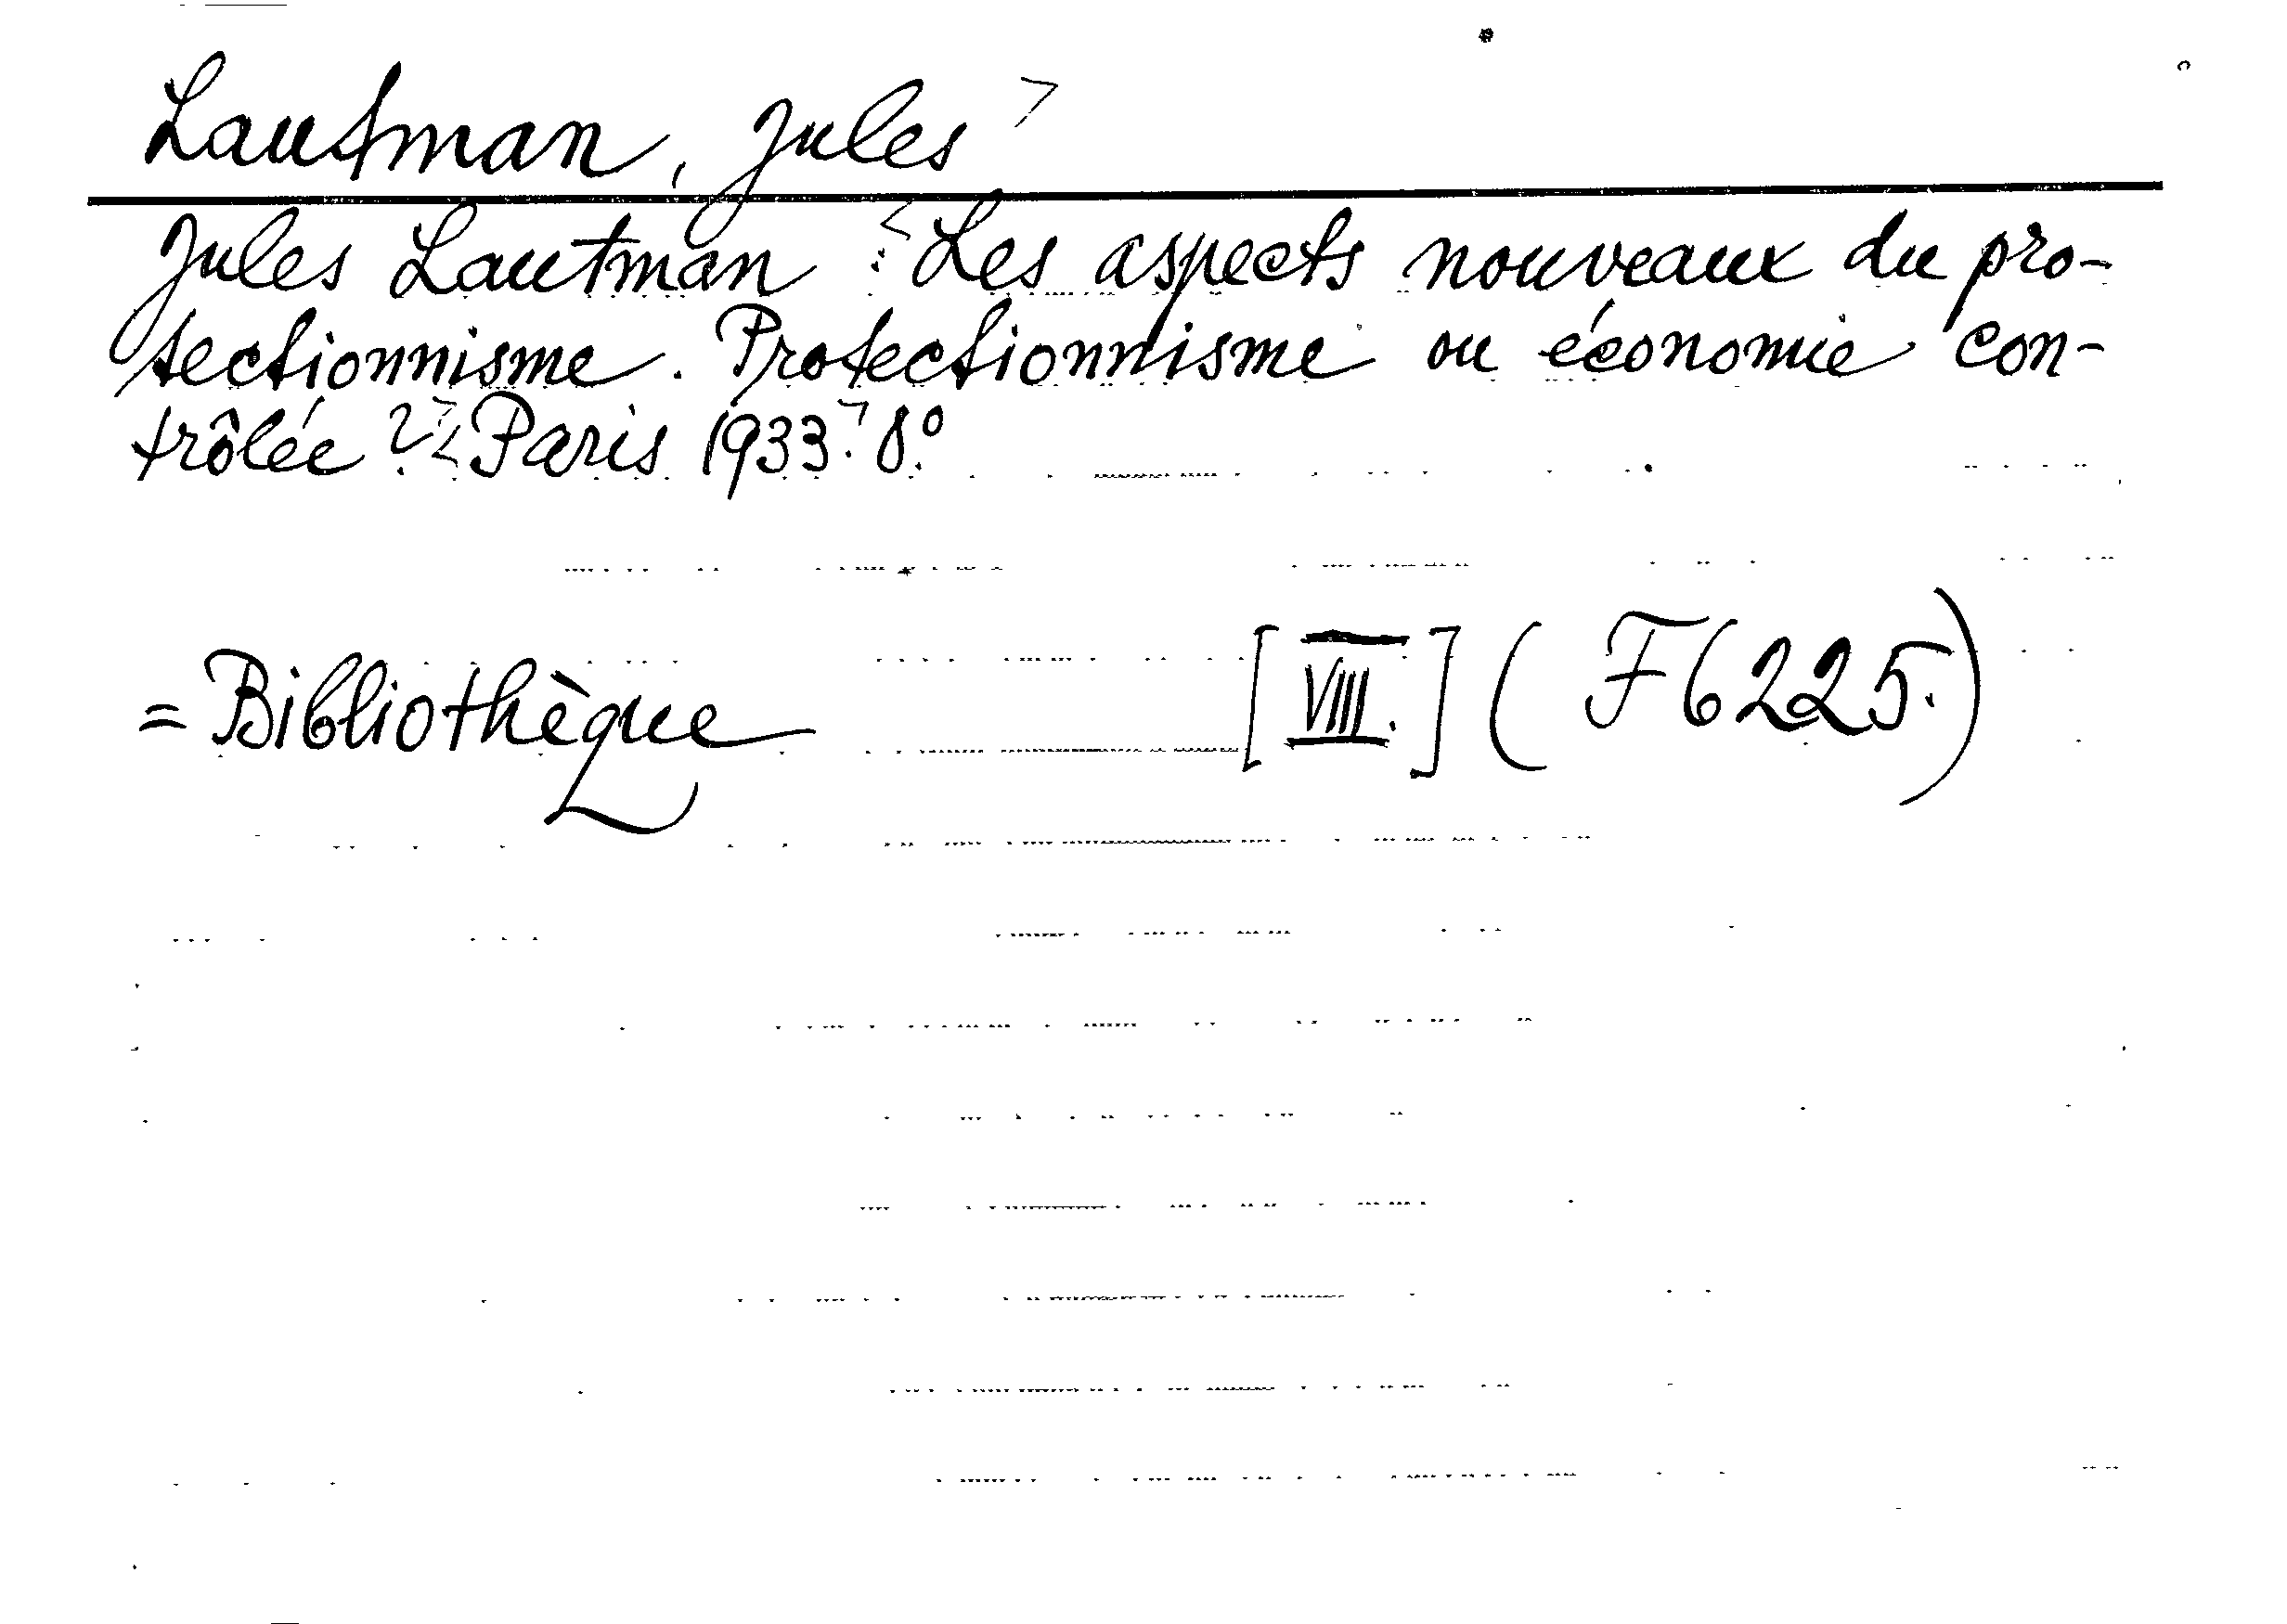 Lautman, Jules
Jules Lautman : Les aspects nouveaux du pro-
tectionnisme. Protectionnisme ou économie con-
trôlée ? Paris 1933. 8.º
= Bibliothèque [VIII.] (F6225.)